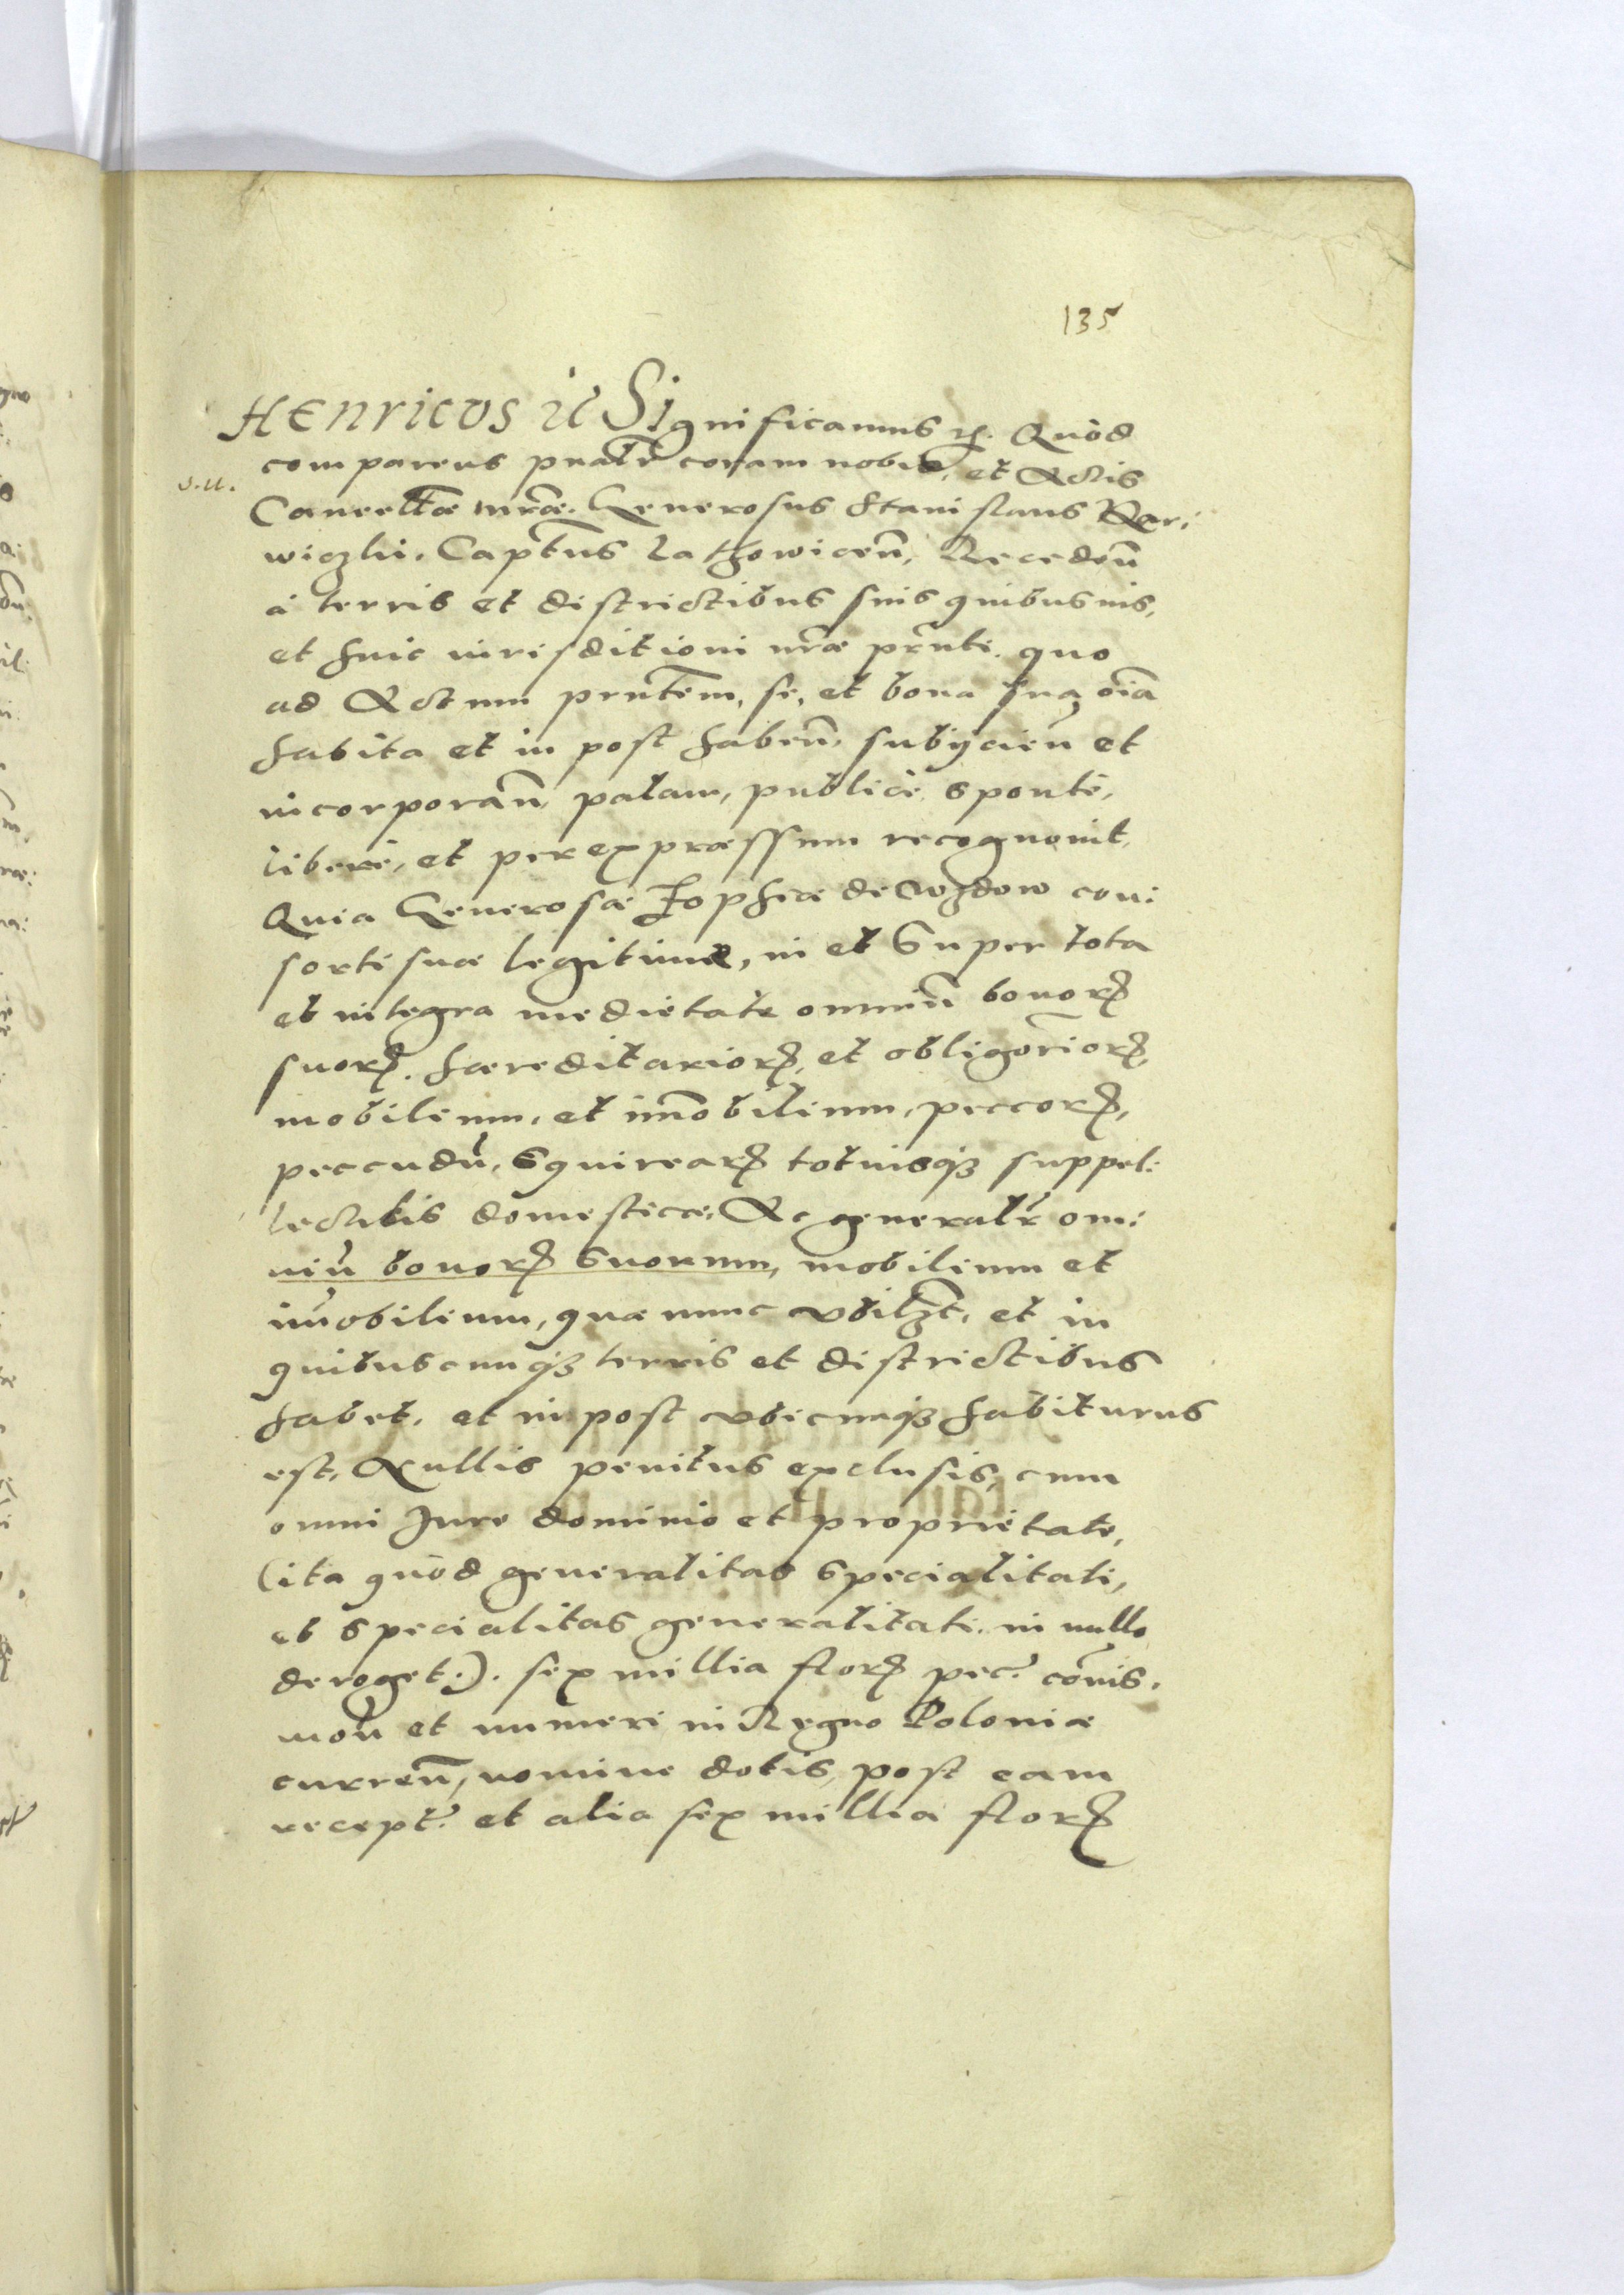 135
HENRICUS etc Significamus etc. Quòd
comparens pnalr̃ coram nobis, et Actis
Cancellae̅ nr̃ae. Generosus Stanislaus Kar:
v.u.
wiczki. Capt̃us Lathowicen̅, Recedeñ
à terris et districtibus suis quibusuis,
et huic iurisditioni nr̃ae prñti. quo
ad Actum prñtem, se, et bona sua, oĩa
habita et in post habeñ, subijcieñ et
incorporañ palam, publicè sponte,
liberè, et per expraessum recognouit,
Quia Generosae Zophiae de con:
sorti suae legitimae, in et super tota
et integra medietate omniũ bonorꝝ
suorꝝ. haereditariorꝝ, et obligoriorꝝ,
mobilium, et im̅obilium, peccorꝝ,
peccudũ, squirearꝝ totiusqꝫ suppel:
lectilis domesticae. Ac generalr̃ om:
niũ bonorꝝ suorum, mobilium et
im̃obilium, quae nunc vbilꝫt, et in
quibuscunqꝫ terris et districtibus
habet, et in post vbicunqꝫ habiturus
est, Nullis penitus exclusis, cum
omni Jure dominio et proprietate,
(ita quòd generalitas specialitati,
et specialitas generalitati. in nullo
deroget:). sex millia florꝝ pec: com̃is.
moñ et numeri in Regno Poloniae
curreñ, nomine dotis, post eam
recept: et alia sex millia florꝝ